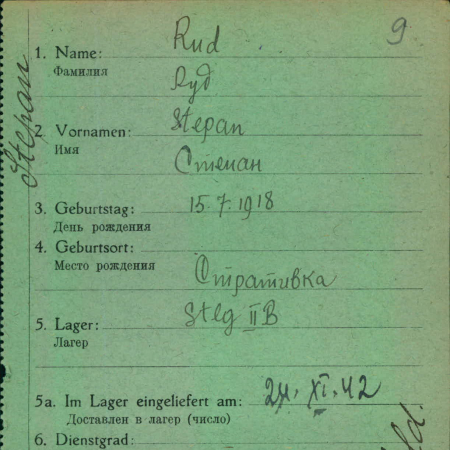 9
Rud
1. Name:
Фамилия
Руд
Stepan
2 Vornamen: Stepan
Имя
Степан
3. Geburtstag: 15.7.1918
День рождения
4. Geburtsort:
Место рождения
Стративка
5. Lager: Stlg II B
Лагер
5a. Im Lager eingeliefert am: 24. XI. 42
Доставлен в лагер (число)
6. Dienstgrad: